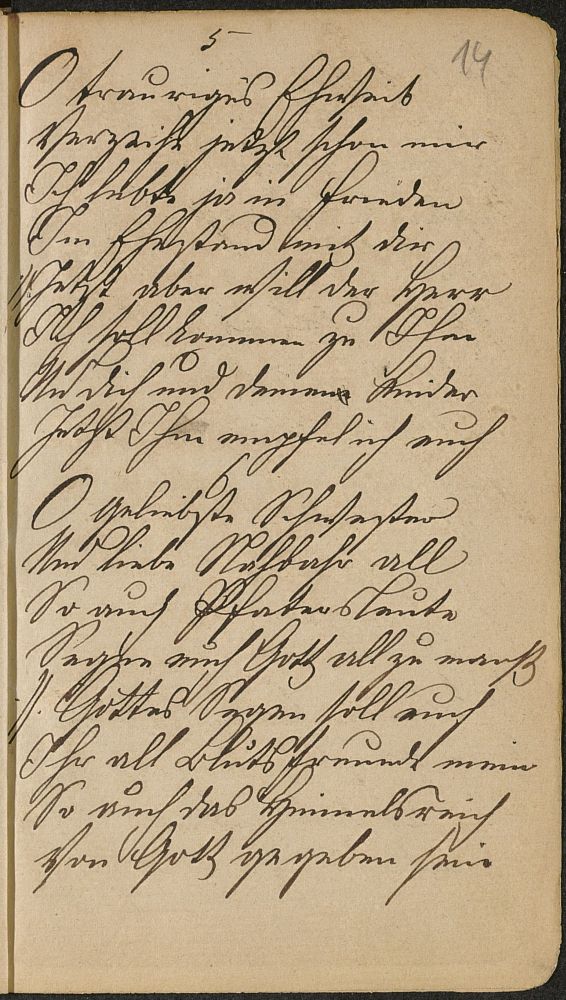 5
14
O trauriges Ehweib
Verzeiht jetzt schon mir
Ich lebte ja in Frieden
Im Ehestand mit dir
//: Jetzt aber will der Herr
Ich soll kommen zu Ihm
Un dich und deine Kinder
Jetzt Ihm empfel ich euch
6
O geliebste Schwester
Und liebe Nachbahr all
So auch Pfaters Leute
Segne euch Gott all zu
//: Gottes Segen soll euch
Ihr all Blutsfreunde mein
So auch das Himmelsreich
Von Gott gegeben sein